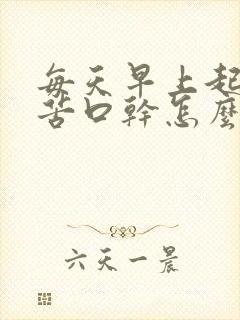 每天早上起
苦口幹怎麼
六天一晨